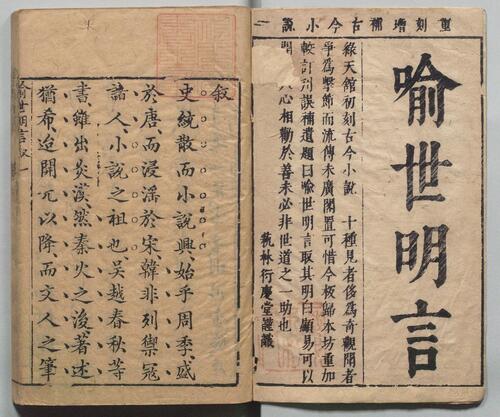 重刻增補古今小說一
喻世明言
綠天館初刻古今小說　十種見者侈為奇觀聞者
爭為擊節而流傳未廣閣置可惜今板歸本坊重加
較訂刋誤補遺題曰喻世明言取其明白顯易可以
開　人心相勸於善未必非世道之一助也
執林衍慶堂謹識
叙
史統散而小說興始乎周季盛
於唐而浸淫於宋韓非列禦寇
諸人小說之祖也吳越春秋等
書雖出炎漢然秦火之後著述
猶希迨開元以降而文人之筆
喻世明言叙　一